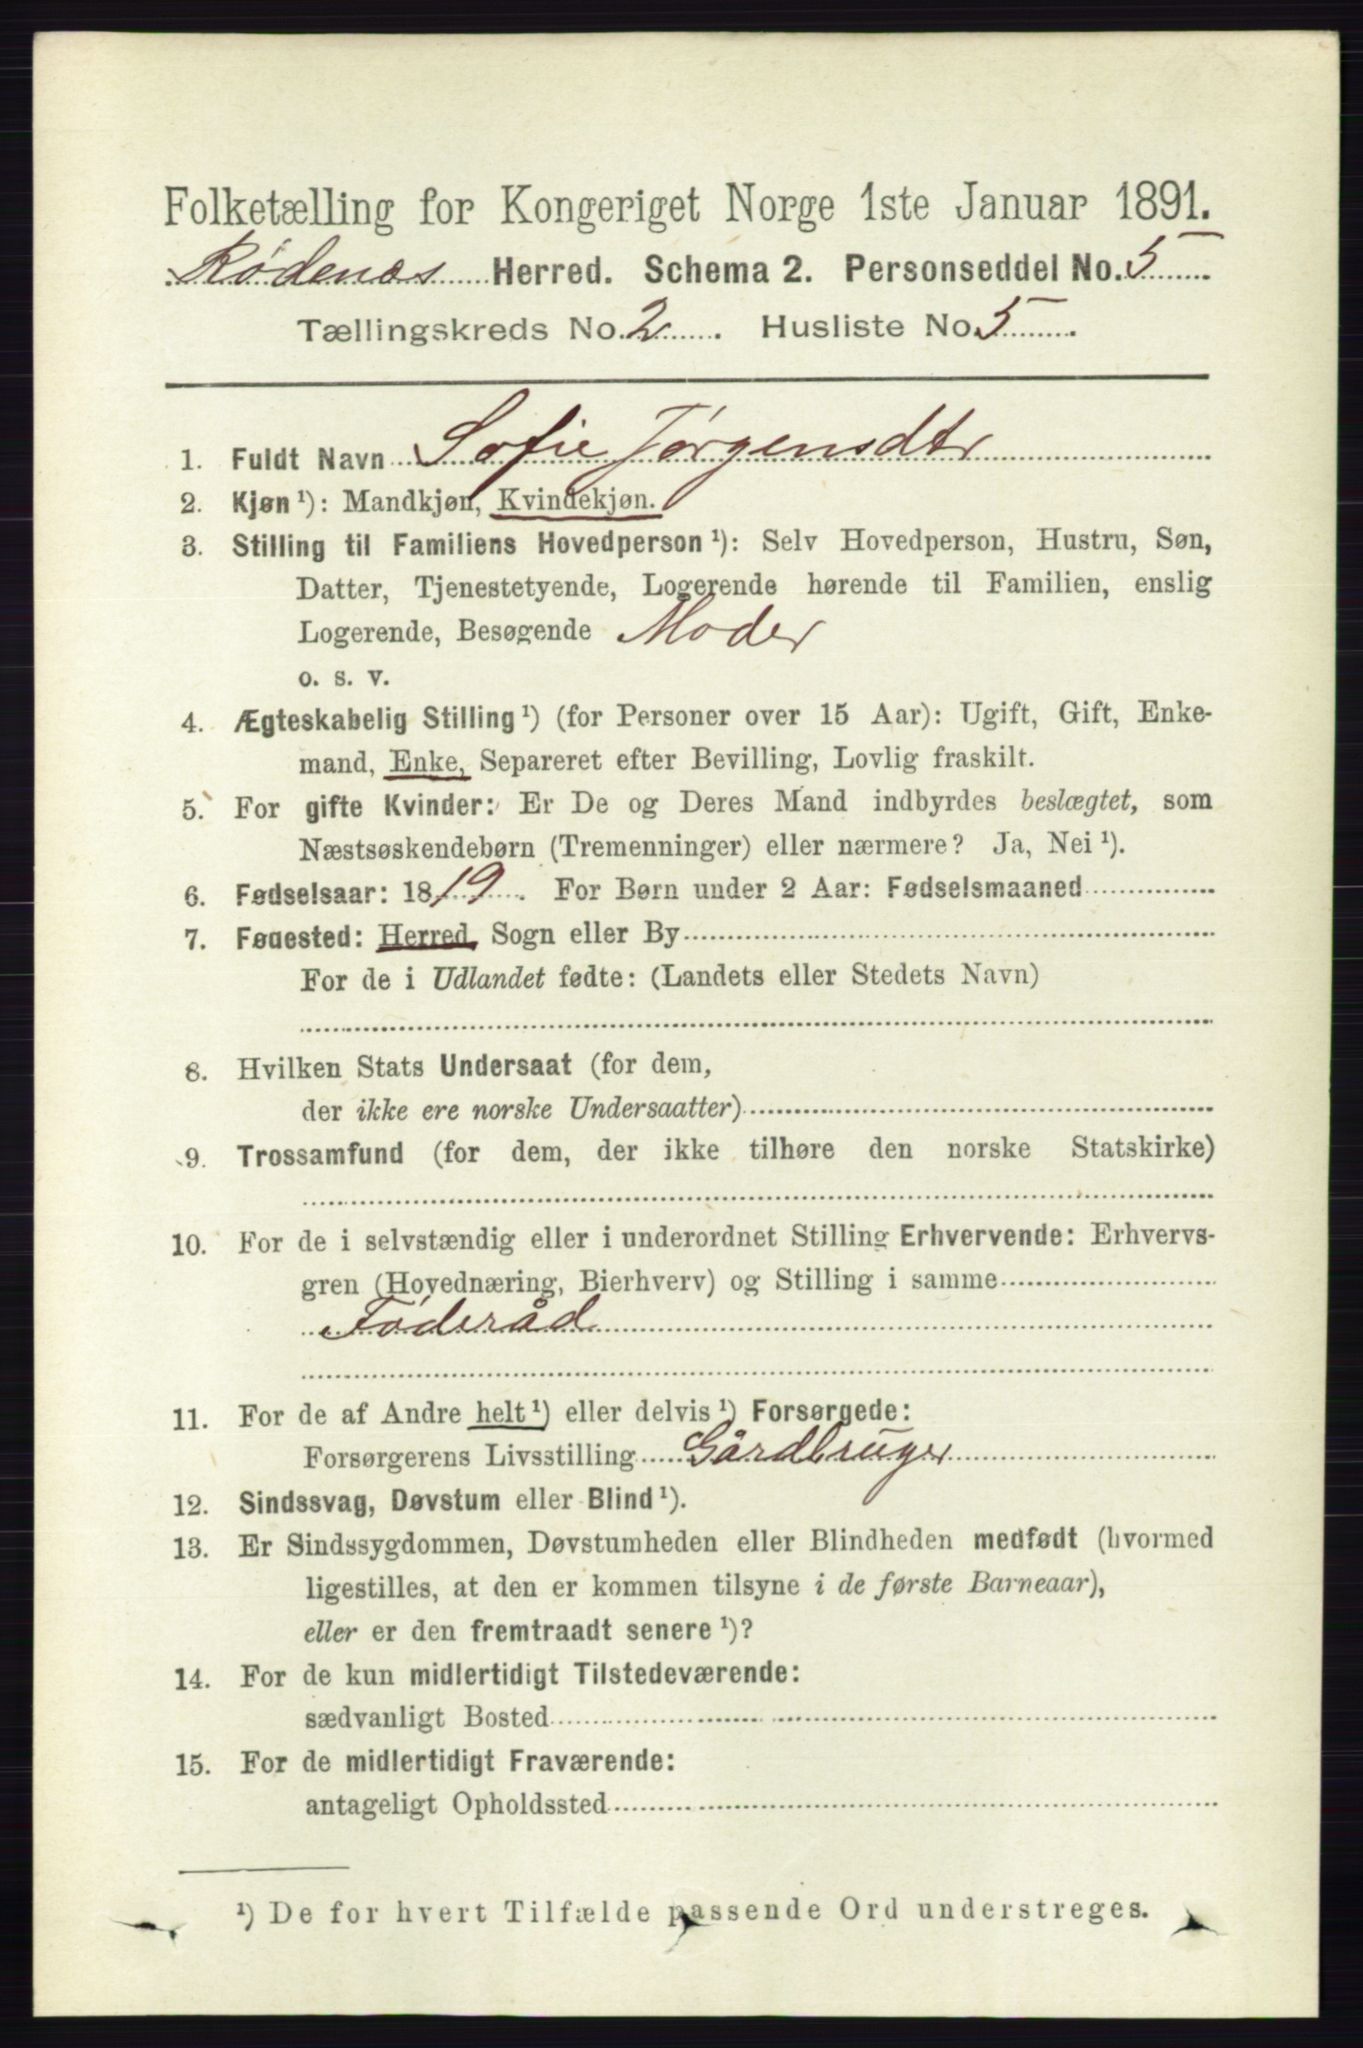 Folketælling for Kongeriget Norge 1ste Januar 1891.
Rødenæs Herred. Schema 2. Personseddel No. 5
Tællingskreds No. 2. Husliste No. 5
1. Fuldt Navn Sofie Jørgensdtr
2. Kjøn¹): Mandkjøn, Kvindekjøn.
3. Stilling til Familiens Hovedperson¹): Selv Hovedperson, Hustru, Søn,
Datter, Tjenestetyende, Logerende hørende til Familien, enslig
Logerende, Besøgende Moder
o. s. v.
4. Ægteskabelig Stilling¹) (for Personer over 15 Aar): Ugift, Gift, Enke-
mand, Enke, Separeret efter Bevilling, Lovlig fraskilt.
5. For gifte Kvinder: Er De og Deres Mand indbyrdes beslægtet, som
Næstsøskendebørn (Tremenninger) eller nærmere? Ja, Nei¹).
6. Fødselsaar: 1819. For Børn under 2 Aar: Fødselsmaaned
7. Fødested: Herred, Sogn eller By
For de i Udlandet fødte: (Landets eller Stedets Navn)
8. Hvilken Stats Undersaat (for dem,
der ikke ere norske Undersaatter)
9. Trossamfund (for dem, der ikke tilhøre den norske Statskirke)
10. For de i selvstændig eller i underordnet Stilling Erhvervende: Erhvervs-
gren (Hovednæring, Bierhverv) og Stilling i samme
Føderåd
11. For de af Andre helt¹) eller delvis¹) Forsørgede:
Forsørgerens Livsstilling Gårdbruger
12. Sindssvag, Døvstum eller Blind¹).
13. Er Sindssygdommen, Døvstumheden eller Blindheden medfødt (hvormed
ligestilles, at den er kommen tilsyne i de første Barneaar),
eller er den fremtraadt senere¹)?
14. For de kun midlertidigt Tilstedeværende:
sædvanligt Bosted
15. For de midlertidigt Fraværende:
antageligt Opholdssted
¹) De for hvert Tilfælde passende Ord understreges.